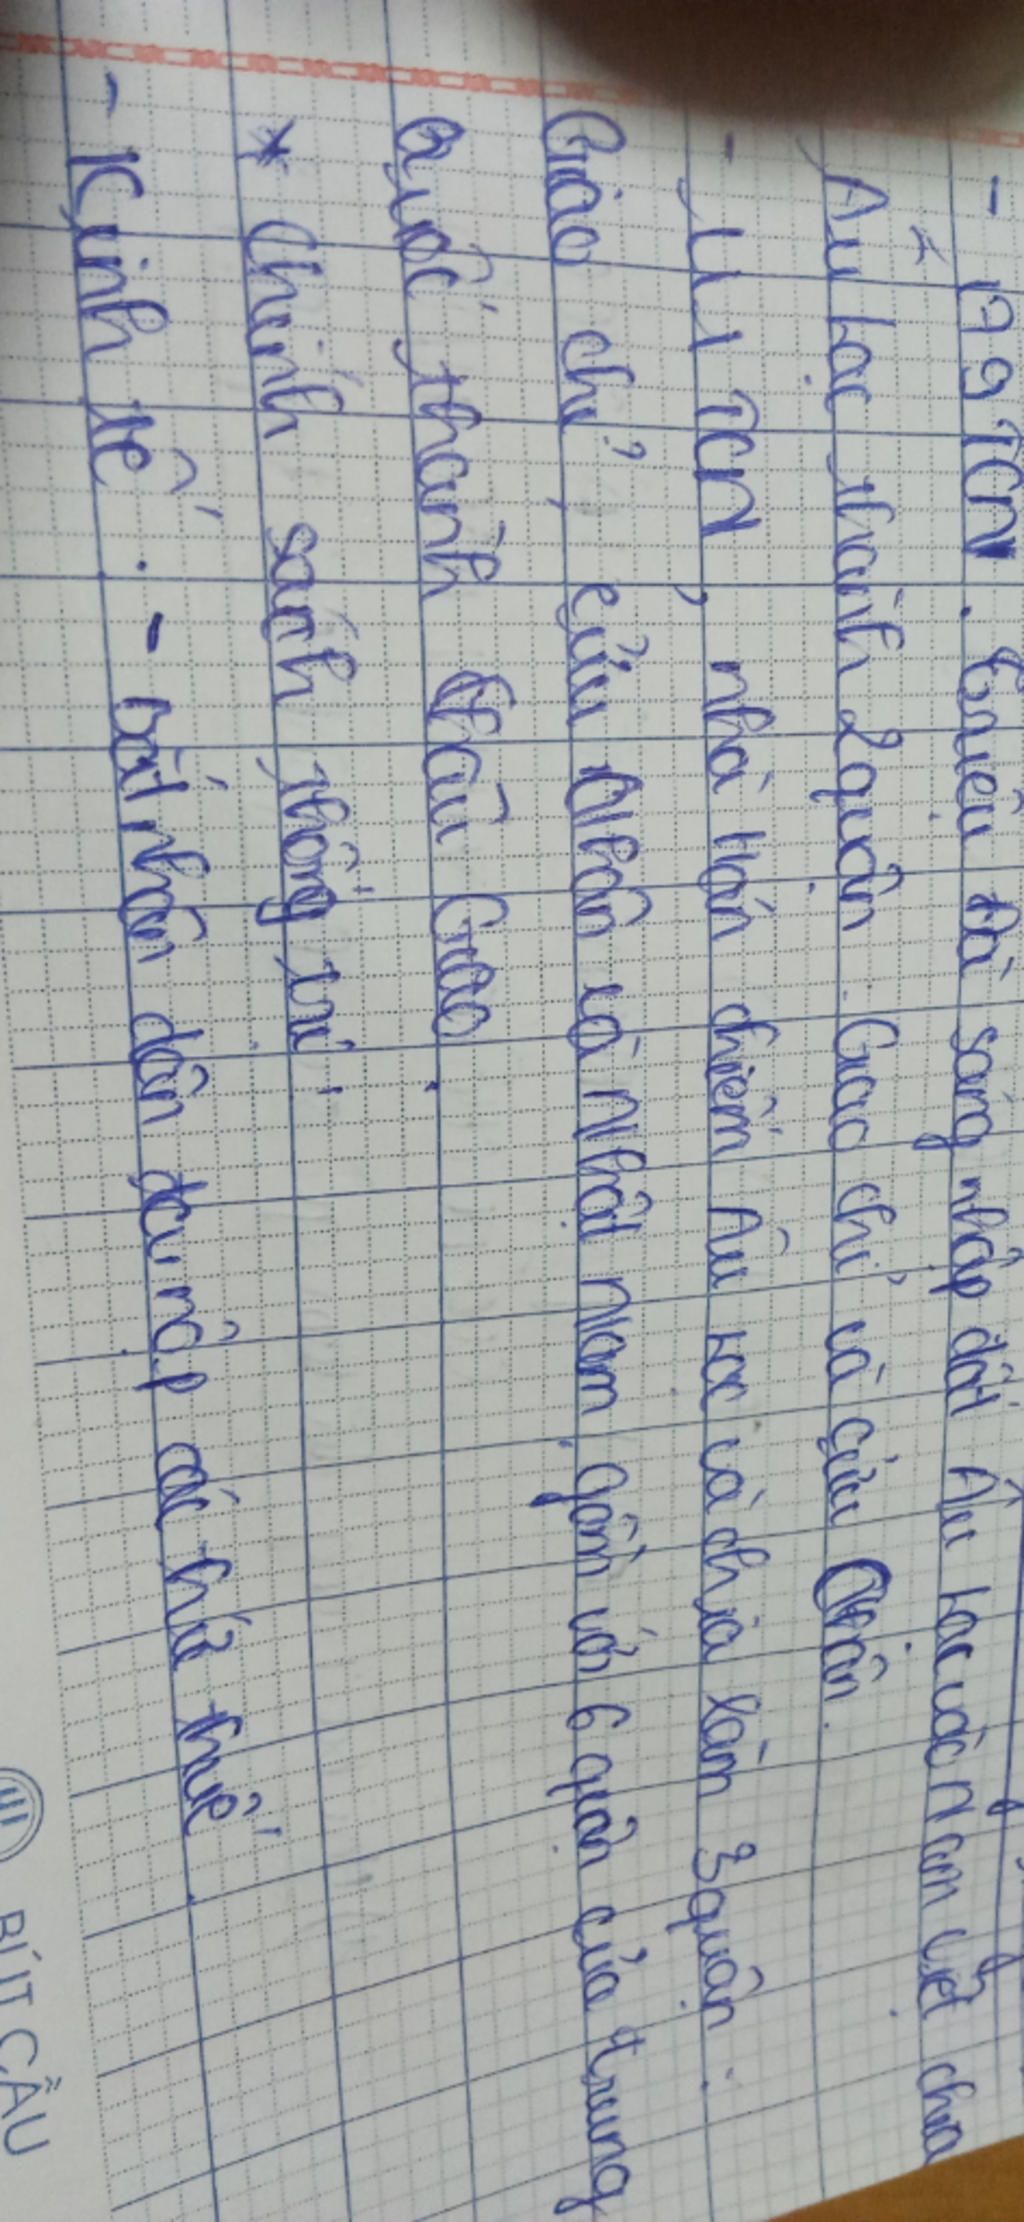 - 179 TCN. Triệu Đà sáng nhập đất Âu Lạc vào Nam Việt chia
Âu Lạc thành 2 quận. Giao chỉ và Cửu Chân.
- 111 TCN, nhà Hán chiếm Âu Lạc và chia làm 3 quận.
Giao chỉ, cửu Chân và Nhật Nam. gộm với 6 quận của trung
quốc thành Châu Giao.
* Chính sách thống trị:
- Kinh tế: - bắt nhân dân ta nộp các thứ thuế
BÚT CẦU